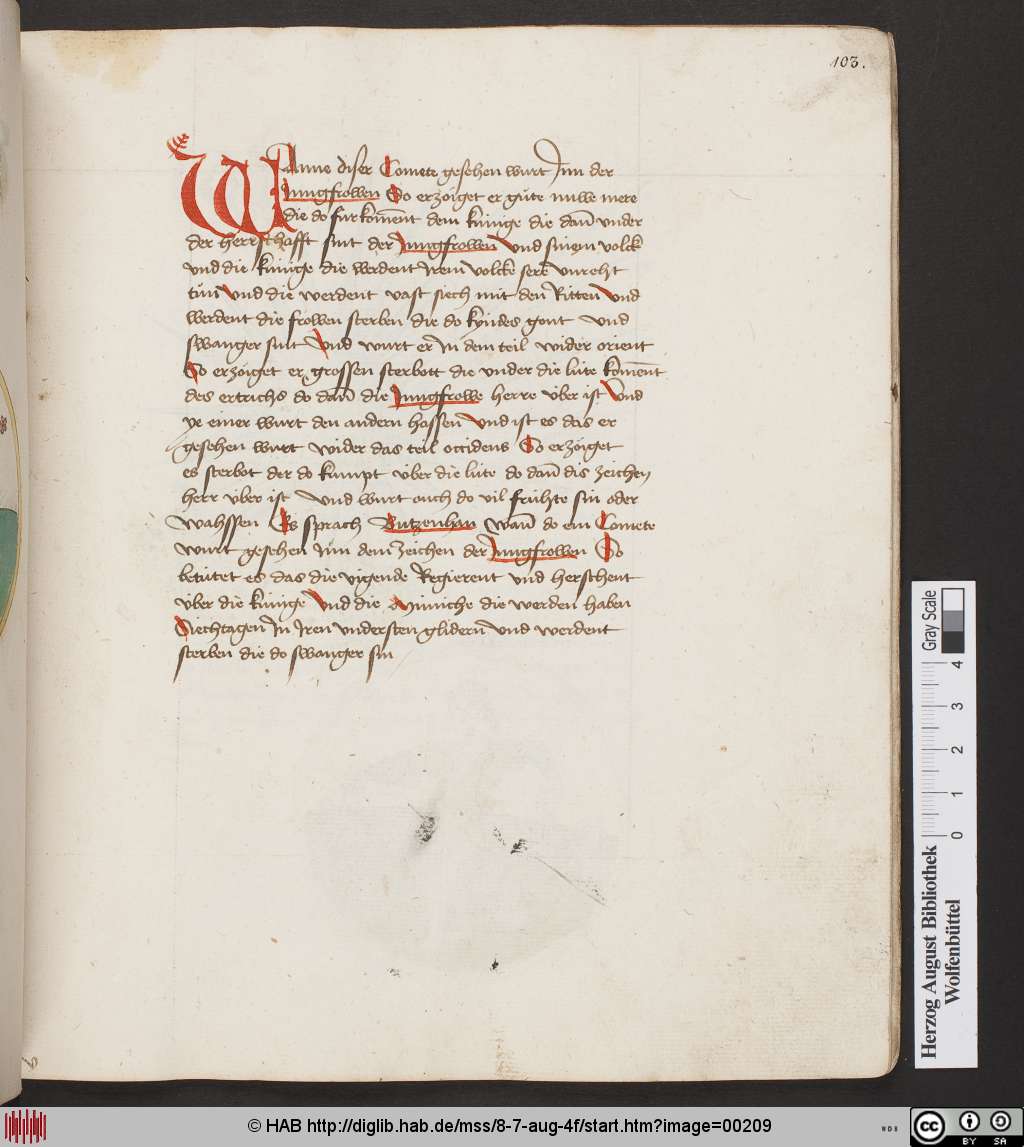 103.
WAnne diser Comete gesehen wurt Jnn der
Jungfrowen So erzöiget er gůte nuwe mere
die do fur kom̄ent dem kunige die dan̄ vnder
der herrschafft sint der Jungfrowen Vnd sinem volck
vnd die kunige die werdent Jrem volcke sere vnreht
tůn Vnd die werdent vast siech mit den Ritten Vnd
werdent die frowen sterben die do kyndes gont Vnd
swanger sint Vnd wurt er Jn dem teil wider orient
So erzöiget er grossen sterbott die vnder die lute kom̄ent
des ertrichs do dan̄ die Jungfrowe herre über ist Vnd
ye einer wurt den andern hassen Vnd ist es das er
gesehen wurt wider das teil occidens So erzöiget
es sterbot der do kumpt über die lute do dan̄ dis zeichen
herr über ist Vnd wurt ouch do vil frühte sin oder
wahssen Es sprach wan̄ do ein Comete
wurt gesehen Jnn dem zeichen der Jungfrowen So
betütet es das die vigende Regierent vnd herschent
über die kunige Vnd die Münniche die werden haben
Siechtagen Jn Jren vndersten glidern vnd werdent
sterben die do swanger sin
Herzog August Bibliothek
Wolfenbüttel
Gray Scale
0 1 2 3 4
© HAB http://diglib.hab.de/mss/8-7-aug-4f/start.htm?image=00209
WDB
cc BY SA